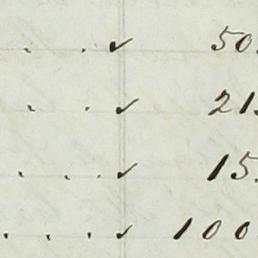 . . ✓ 50.
. . ✓ 21.
. . . ✓ 15.
. . . ✓ 100.